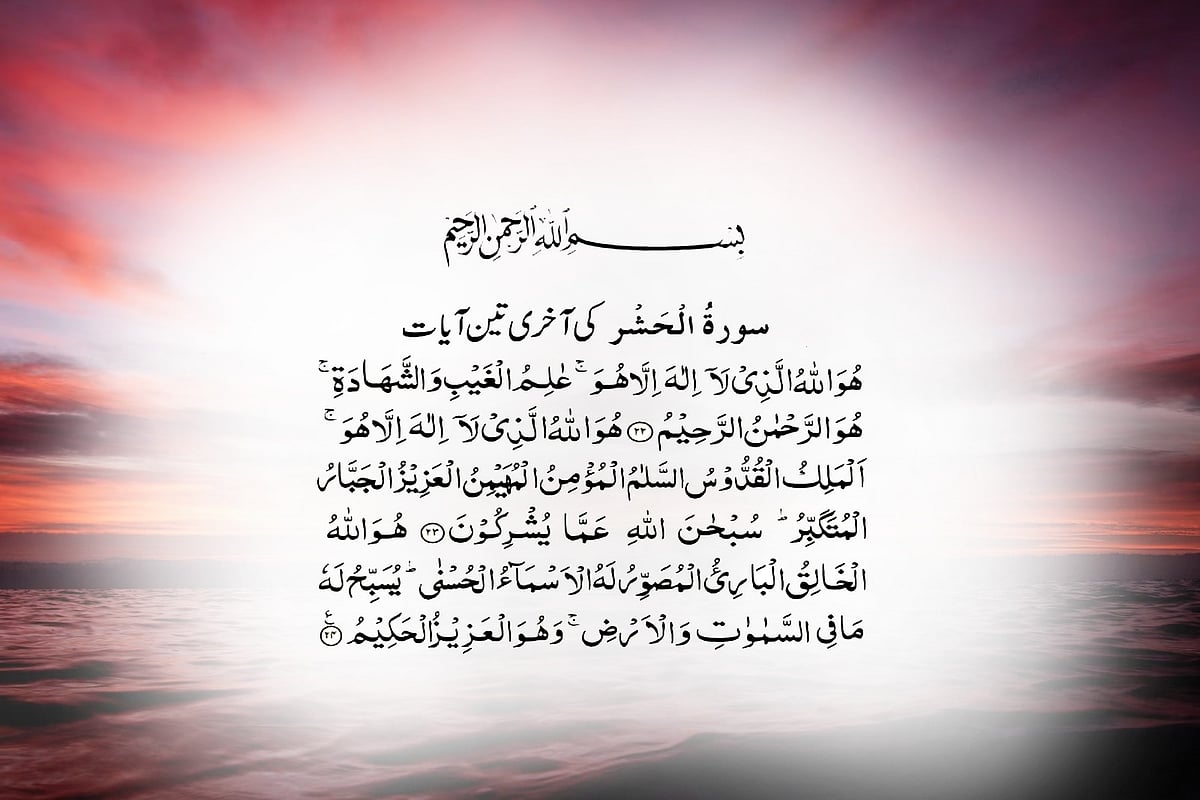 بِسْمِ اللهِ الرَّحْمٰنِ الرَّحِيْمِ
سورۃُ الْحَشْر کی آخری تین آیات
هُوَ اللهُ الَّذِىْ لَآ اِلٰهَ اِلَّا هُوَ ۚ عٰلِمُ الْغَيْبِ وَالشَّهَادَةِ ۚ
هُوَ الرَّحْمٰنُ الرَّحِيْمُ ﴿۲۲﴾ هُوَ اللهُ الَّذِىْ لَآ اِلٰهَ اِلَّا هُوَ ۚ
اَلْمَلِكُ الْقُدُّوْسُ السَّلٰمُ الْمُؤْمِنُ الْمُهَيْمِنُ الْعَزِيْزُ الْجَبَّارُ
الْمُتَكَبِّرُ ؕ سُبْحٰنَ اللهِ عَمَّا يُشْرِكُوْنَ ﴿۲۳﴾ هُوَ اللهُ
الْخَالِقُ الْبَارِئُ الْمُصَوِّرُ لَهُ الْاَسْمَآءُ الْحُسْنٰى ؕ يُسَبِّحُ لَهٗ
مَا فِى السَّمٰوٰتِ وَالْاَرْضِ ۚ وَهُوَ الْعَزِيْزُ الْحَكِيْمُ ﴿۲۴﴾ ع